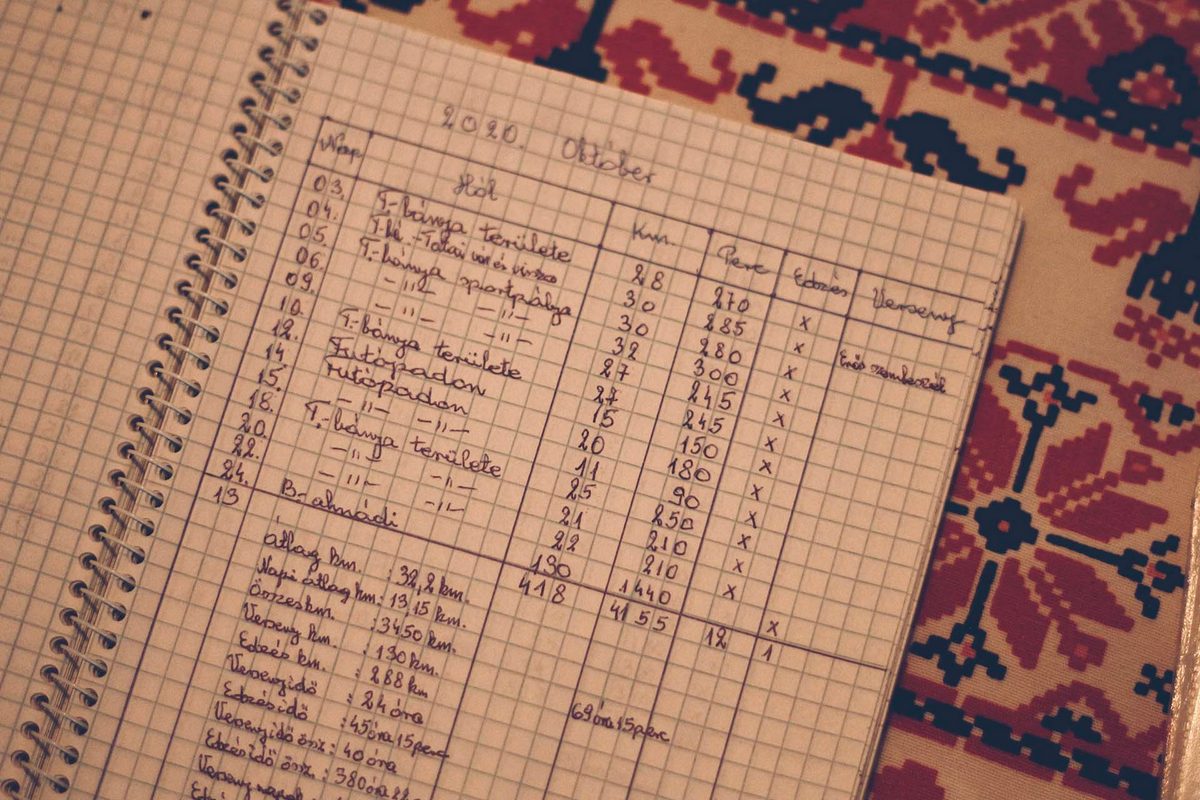 2020. Október
Nap Hol Km. Perc Edzés Verseny
03. T.-bánya területe 28 270 x
04. 30 285 x
05. T.-bánya sportpálya 30 280 x
06. -"- -"- 32 300 x
09. -"- -"- 27 245 x
10. T.-bánya területe 27 245 x
12. Futópadon 15 150 x
14. Futópadon 20 180 x
15. -"- -"- 11 90 x
18. T.-bánya területe 25 250 x
20. -"- -"- 21 210 x
22. -"- -"- 22 210 x
24. B.-almádi 130 1440 x
13 418 4155 12 1
átlag km. : 32,2 km.
Napi átlag km: 13,15 km.
összes km. : 3450 km.
Verseny km. : 130 km.
Edzés km. : 288 km
Versenyidő : 24 óra
69 óra 15 perc
Edzésidő : 45 óra 15 perc
Versenyidő össz: 40 óra
Edzésidő össz. : 380 óra